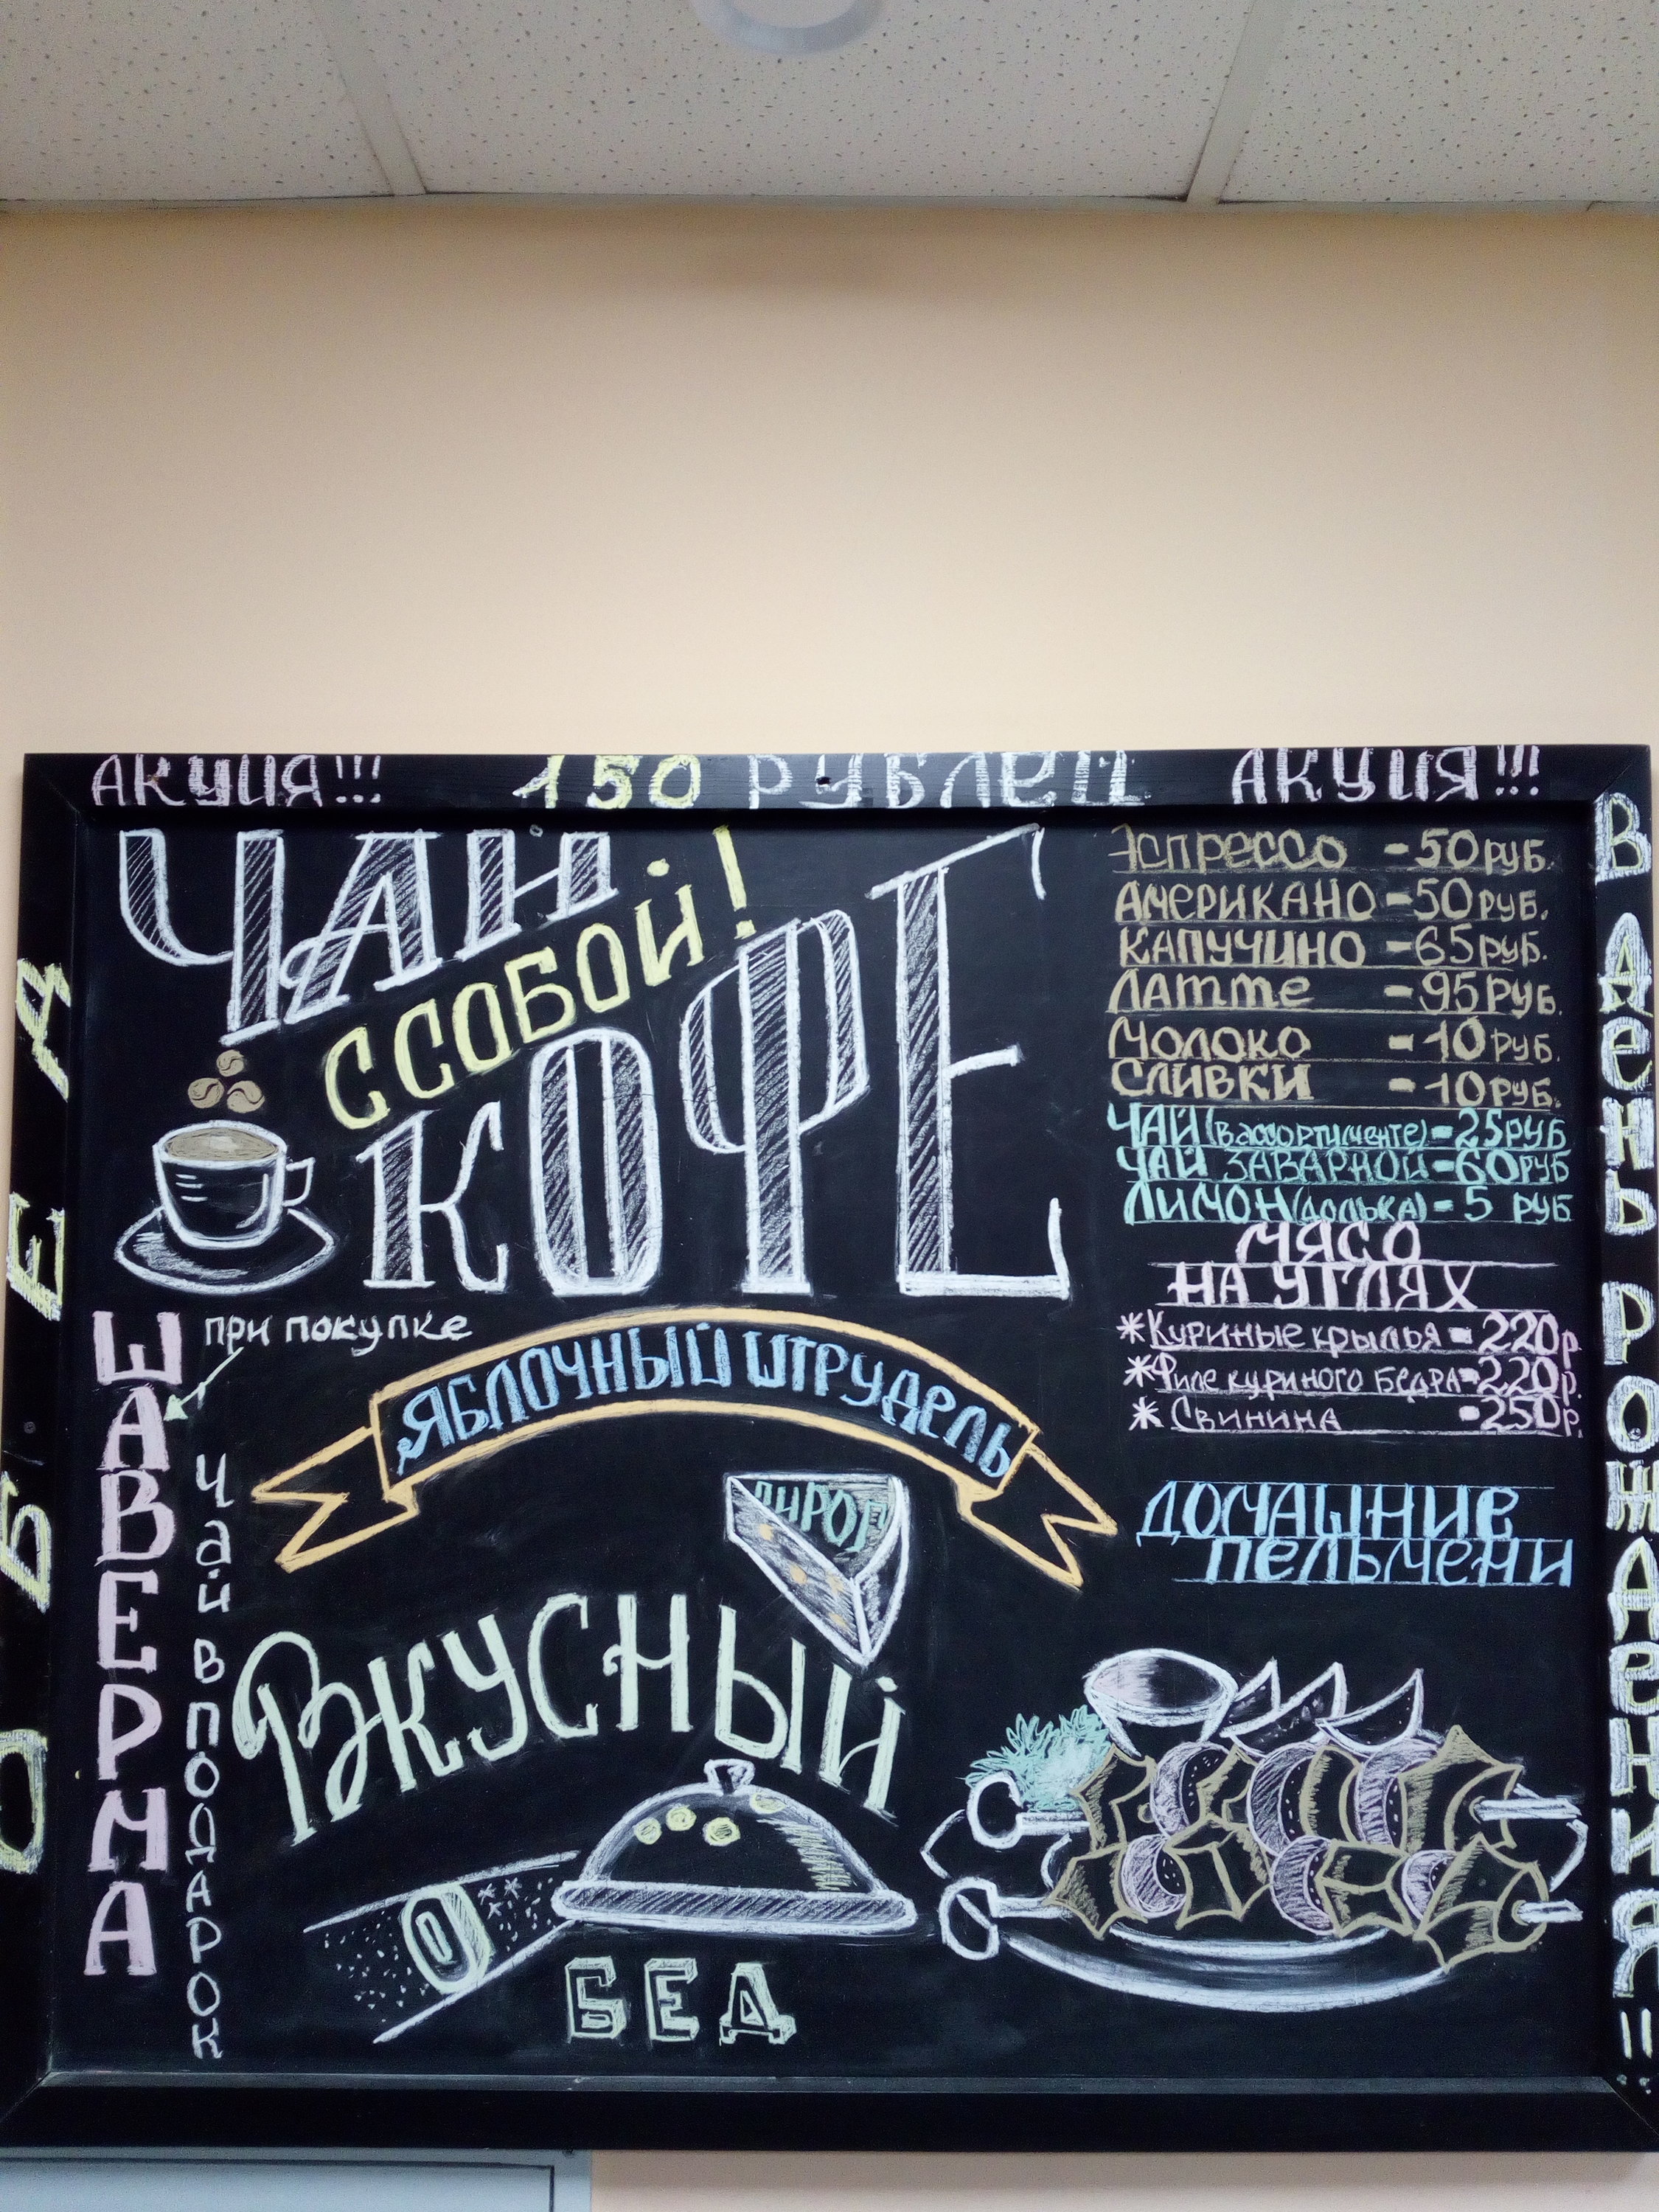 АКЦИЯ!!! 150 РУБЛЕЙ АКЦИЯ!!!
ОБЕД
В ДЕНЬ РОЖДЕНИЯ!!
ЧАЙ
С СОБОЙ!
КОФЕ
ЭСПРЕССО - 50 РУБ.
АМЕРИКАНО - 50 РУБ.
КАПУЧИНО - 65 РУБ.
ЛАТТЕ - 95 РУБ.
МОЛОКО - 10 РУБ.
СЛИВКИ - 10 РУБ.
ЧАЙ (в ассортименте) - 25 РУБ
ЧАЙ ЗАВАРНОЙ - 60 РУБ
ЛИМОН (ДОЛЬКА) - 5 РУБ
МЯСО
НА УГЛЯХ
* Куриные крылья - 220 р.
* Филе куриного бедра - 220 р.
* Свинина - 250 р.
ДОМАШНИЕ
ПЕЛЬМЕНИ
ШАВЕРМА
при покупке
чай в подарок
ЯБЛОЧНЫЙ ШТРУДЕЛЬ
ПИРОГ
ВКУСНЫЙ
ОБЕД